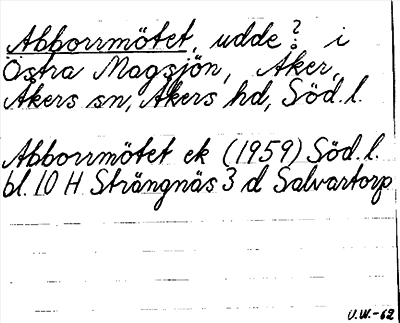 Abborrmötet, udde? i
Östra Magsjön, Åker,
Åkers sn, Åkers hd, Söd.l.
Abborrmötet ek (1959) Söd.l.
bl. 10 H Strängnäs 3 d Salvartorp
U.W.-62